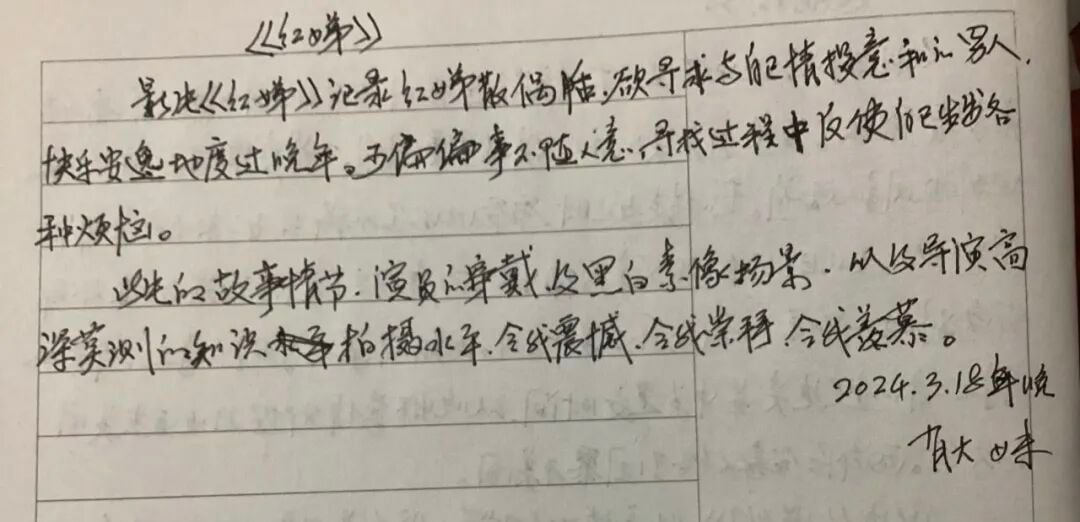 《红娣》
影片《红娣》记录红娣散偶后,欲寻求与自己情投意和的男人,
快乐安逸地度过晚年。可偏偏事不随人意,寻找过程中反使自己生发各
种烦恼。
此片的故事情节,演员的穿戴及黑白景像场景,以及导演高
深莫测的知识和拍摄水平,令我震憾,令我崇拜,令我羡慕。
2024.3.18年晚
肖大妹